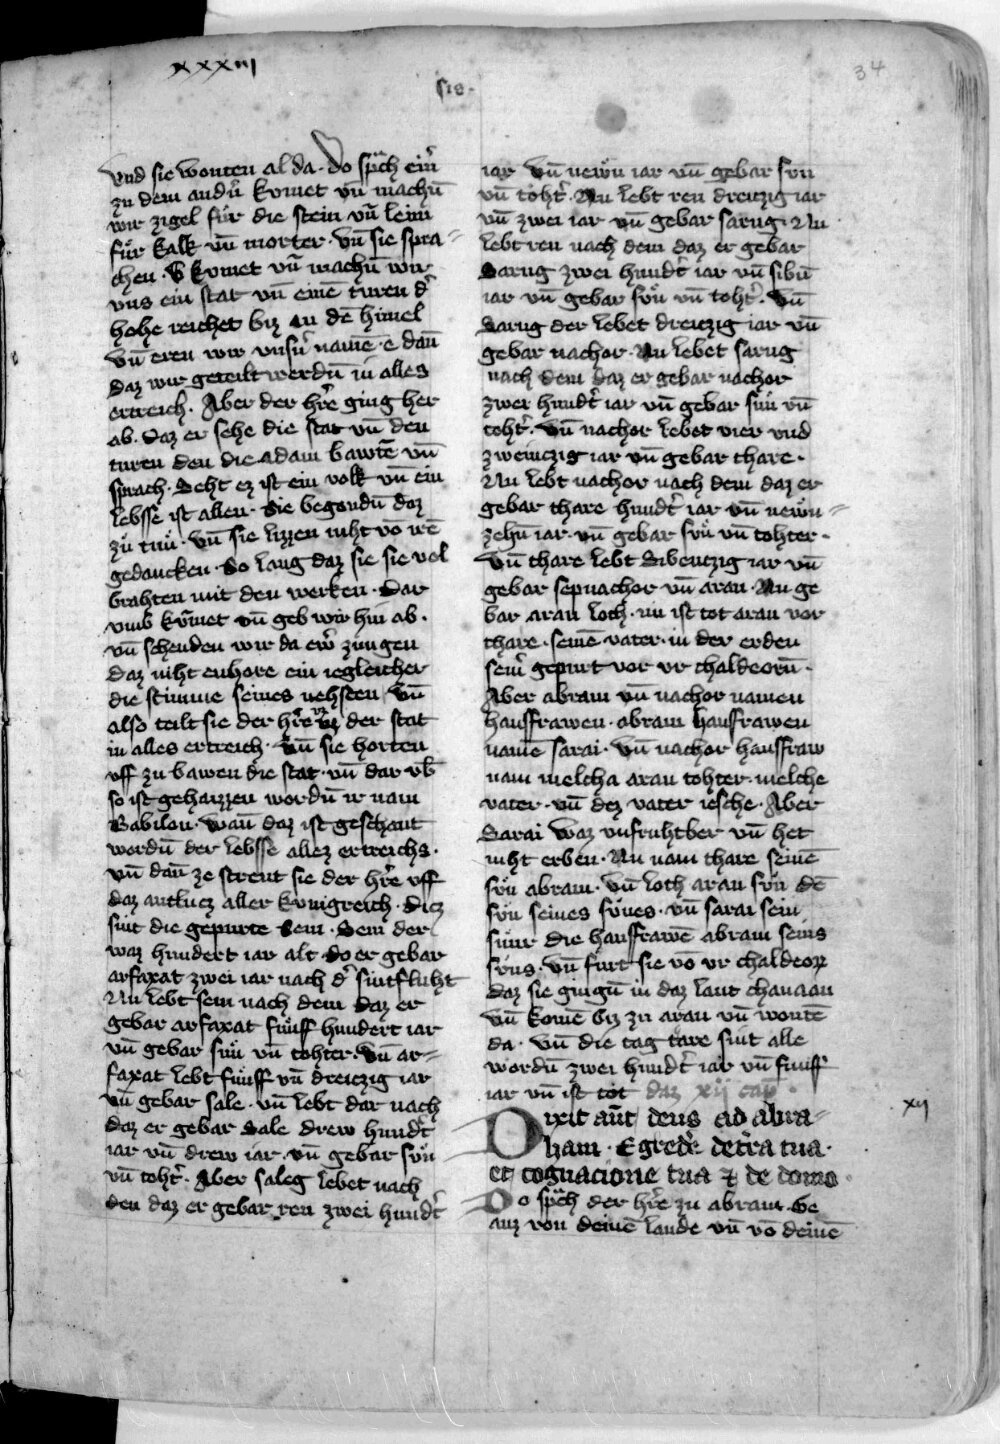 xxxiij
34
sis.
vnd sie wonten al da. Do sp̄ch ein̾
zu dem andn̄ kvmet vn̄ machn̄
wir zigel fůr die stein vn̄ leim
fůr kalk vn̄ morter. vn̄ sie spra-
chen. kvmet vn̄ machn̄ wir
vns ein stat vn̄ einē turen d̾
hohe reichet biz an dē himel
vn̄ eren wir vnsn̾ namē e dan̄
daz wir geteilt werdn̄ in alles
ertreich. Aber der hr̄e ging her
ab. daz er sehe die stat vn̄ den
turen den die adam bawtē vn̄
sprach. Seht ez ist ein volk vn̄ ein
lebsse ist allen. Sie begondn̄ daz
zů tůn. vn̄ sie lizzen niht vō irē
gedancken. So lang daz sie sie vol
brahten mit den werken. Dar
vmb kv̄met vn̄ geb wir hin ab.
vn̄ schenden wir da ir̾ zungen
daz niht enhore ein iegleicher
die stimme seines nehsten. vn̄
also teilt sie der hr̄e vz der stat
in alles ertreich. vn̄ sie horten
vff zu bawen die stat. vn̄ dar vb̄
so ist gehaizzen wordn̄ ir nam
Babilon. wan̄ daz ist geschant
wordn̄ der lebsse allez ertreichs.
vn̄ dan̄ ze strent sie der hr̄e vff
daz antlucz aller kvnigreich. diez
sint die gepurte Sem. Sem der
waz hundert iar alt do er gebar
arfaxat zwei iar nach d̾ sintfluht
Nu lebt sem nach dem daz er
gebar arfaxat fůnff hundert iar
vn̄ gebar sůn vn̄ tohter. vn̄ ar-
faxat lebt fůnff vn̄ dreiczig iar
vn̄ gebar sale. vn̄ lebt dar nach
daz er gebar Sale drew hundt̾
iar vn̄ drew iar. vn̄ gebar sv̊n
vn̄ toht̾. Aber saleg lebet nach
den daz er gebar ren zwei hundt̾
iar vn̄ newn̄ iar vn̄ gebar svn
vn̄ toht̾. Nu lebt ren dreiczig iar
vn̄ zwei iar vn̄ gebar sarug. Nu
lebt ren nach dem daz er gebar
Sarug zwei hundt̾ iar vn̄ sibn̄
iar vn̄ gebar sv̊n vn̄ toht̾. vn̄
Sarug der lebet dreiczig iar vn̄
gebar nachor. Nu lebet sarug
nach dem daz er gebar nachor
zwei hundt̾ iar vn̄ gebar sůn vn̄
toht̾. vn̄ nachor lebet vier vnd
zweinczig iar vn̄ gebar thare.
Nu lebt nachor nach dem daz er
gebar thare hundt̾ iar vn̄ newn-
zehn̄ iar. vn̄ gebar sv̊n vn̄ tohter.
vn̄ thare lebt Sibenczig iar vn̄
gebar sepnachor vn̄ aran. Nu ge
bar aran loth. nu ist tot aran vor
thare. seinē vater. in der erden
sein̾ gepurt vor vr chaldeorn̄.
Aber abram vn̄ nachor namen
hausfrawen. abram hausfrawen
namē sarai. vn̄ nachor hausfraw
nam melcha aran tohter. melche
vater. vn̄ dez vater iesche. Aber
Sarai waz vnfruhtber vn̄ het
niht erben. Nu nam thare seinē
sv̊n abram. vn̄ loth aran sv̊n dē
sv̊n seines sv̊nes. vn̄ sarai sein
snur die hausfrawē abram seins
sv̊ns. vn̄ furt sie vō vr chaldeoꝝ
daz sie gingn̄ in daz lant chanaan
vn̄ komē biz zu aran vn̄ wontē
da. vn̄ die tag tare sint alle
wordn̄ zwei hundt̾ iar vn̄ funff
iar vn̄ ist tot daz xij cap̄.
Dixit aūt deus ad abra-
ham. Egredē de t̾ra tua.
et cognacione tua ⁊ de domo.
Do sp̄ch der hr̄e zu abram. Ge
auz von deinē lande vn̄ vō deinē
xij